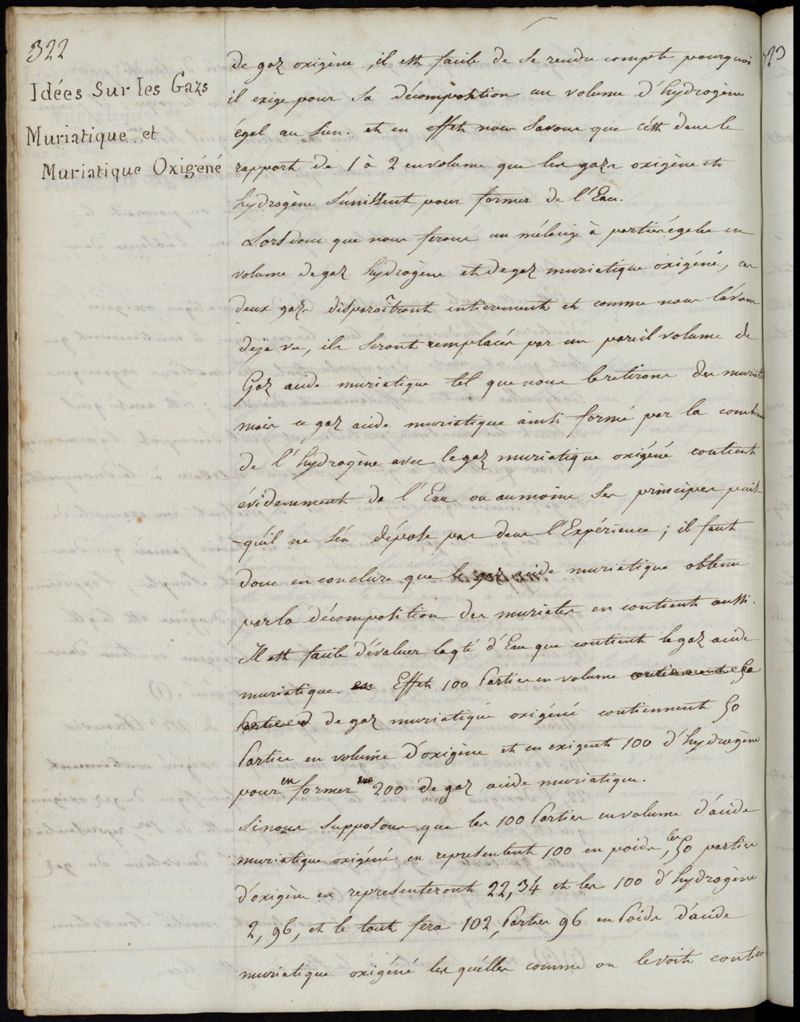 322
Idées Sur les Gazs
Muriatique et
Muriatique Oxigéné
de gaz oxigène, il est facile de se rendre compte pourquoi
il exige pour sa décomposition un volume d'hydrogene
égal au sien. et en effet nous savons que c'est dans le
rapport de 1 à 2 en volume que les gazs oxigène et
hydrogène s'unissent pour former de l'Eau.
Lors donc que nous ferons un mélange à parties égales en
volume de gaz hydrogène et de gaz muriatique oxigéné, ces
deux gazs disparoîtront entierement et comme nous l'avons
deja vu, ils seront remplacés par un pareil volume de
Gaz acide muriatique tel que nous le retirons des muriates
mais ce gaz acide muriatique ainsi formé par la comb
de l'hydrogène avec le gaz muriatique oxigéné contient
évidemment de l'Eau ou au moins ses principes puis-
qu'il ne s'en dépose pas dans l'Expérience ; il faut
donc en conclure que le gaz acide muriatique obtenu
par la décomposition des muriates en contient aussi.
Il est facile d'évaluer la qté d'Eau que contient le gaz acide
muriatique. en Effet 100 Parties en volume contiennent 50
Parties d de gaz muriatique oxigéné contiennent 50
Parties en volume d'oxigène et en exigent 100 d'hydrogène
pour en former 200 de gaz acide muriatique.
Si nous supposons que les 100 Parties en volume d'acide
muriatique oxigéné en representent 100 en poids, les 50 parties
d'oxigène en representeront 22,34 et les 100 d'hydrogène
2,96, et le tout fera 102, Parties 96 en Poids d'acide
muriatique oxigéné les quelles comme on le voit contien